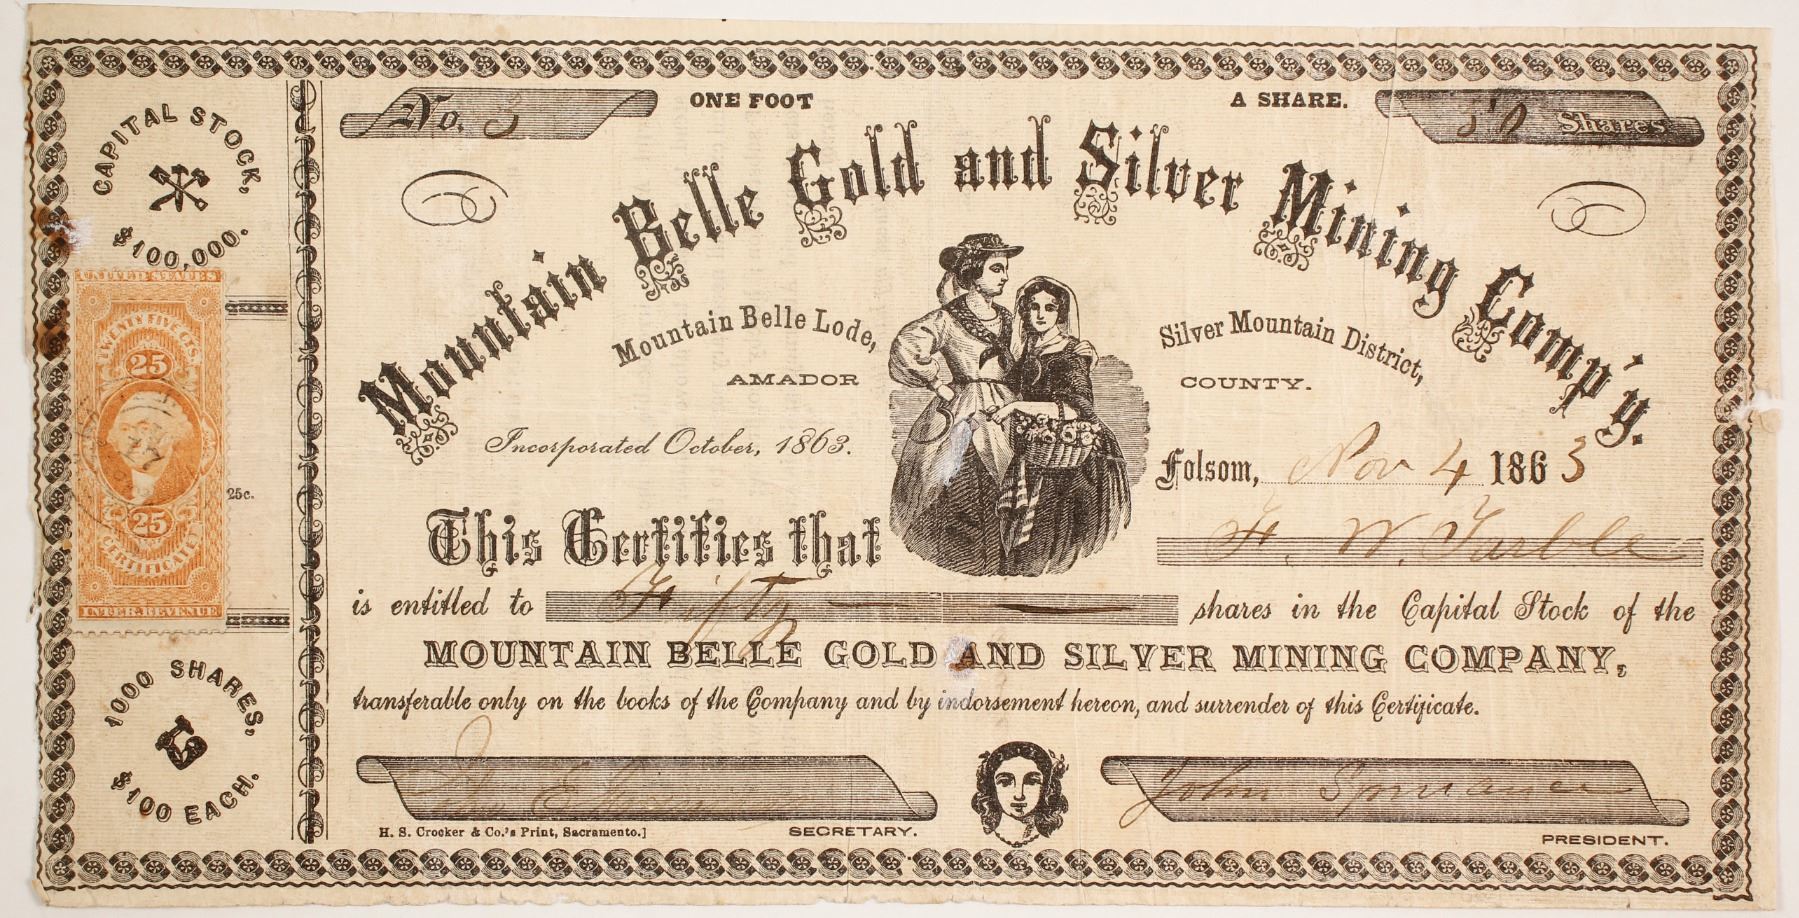 No. 3
ONE FOOT A SHARE.
50 Shares
CAPITAL STOCK,
$100,000.
Mountain Belle Gold and Silver Mining Comp'y.
Mountain Belle Lode, Silver Mountain District,
AMADOR COUNTY.
Incorporated October, 1863.
Folsom, Nov 4 1863
UNITED STATES
TWENTY FIVE CTS.
25
25
CERTIFICATE
INTER. REVENUE
25c.
This Certifies that F. W. Turlle
is entitled to Fifty shares in the Capital Stock of the
MOUNTAIN BELLE GOLD AND SILVER MINING COMPANY,
transferable only on the books of the Company and by indorsement hereon, and surrender of this Certificate.
1000 SHARES,
$100 EACH.
John Spruance
H. S. Crocker & Co.'s Print, Sacramento.]
SECRETARY.
PRESIDENT.